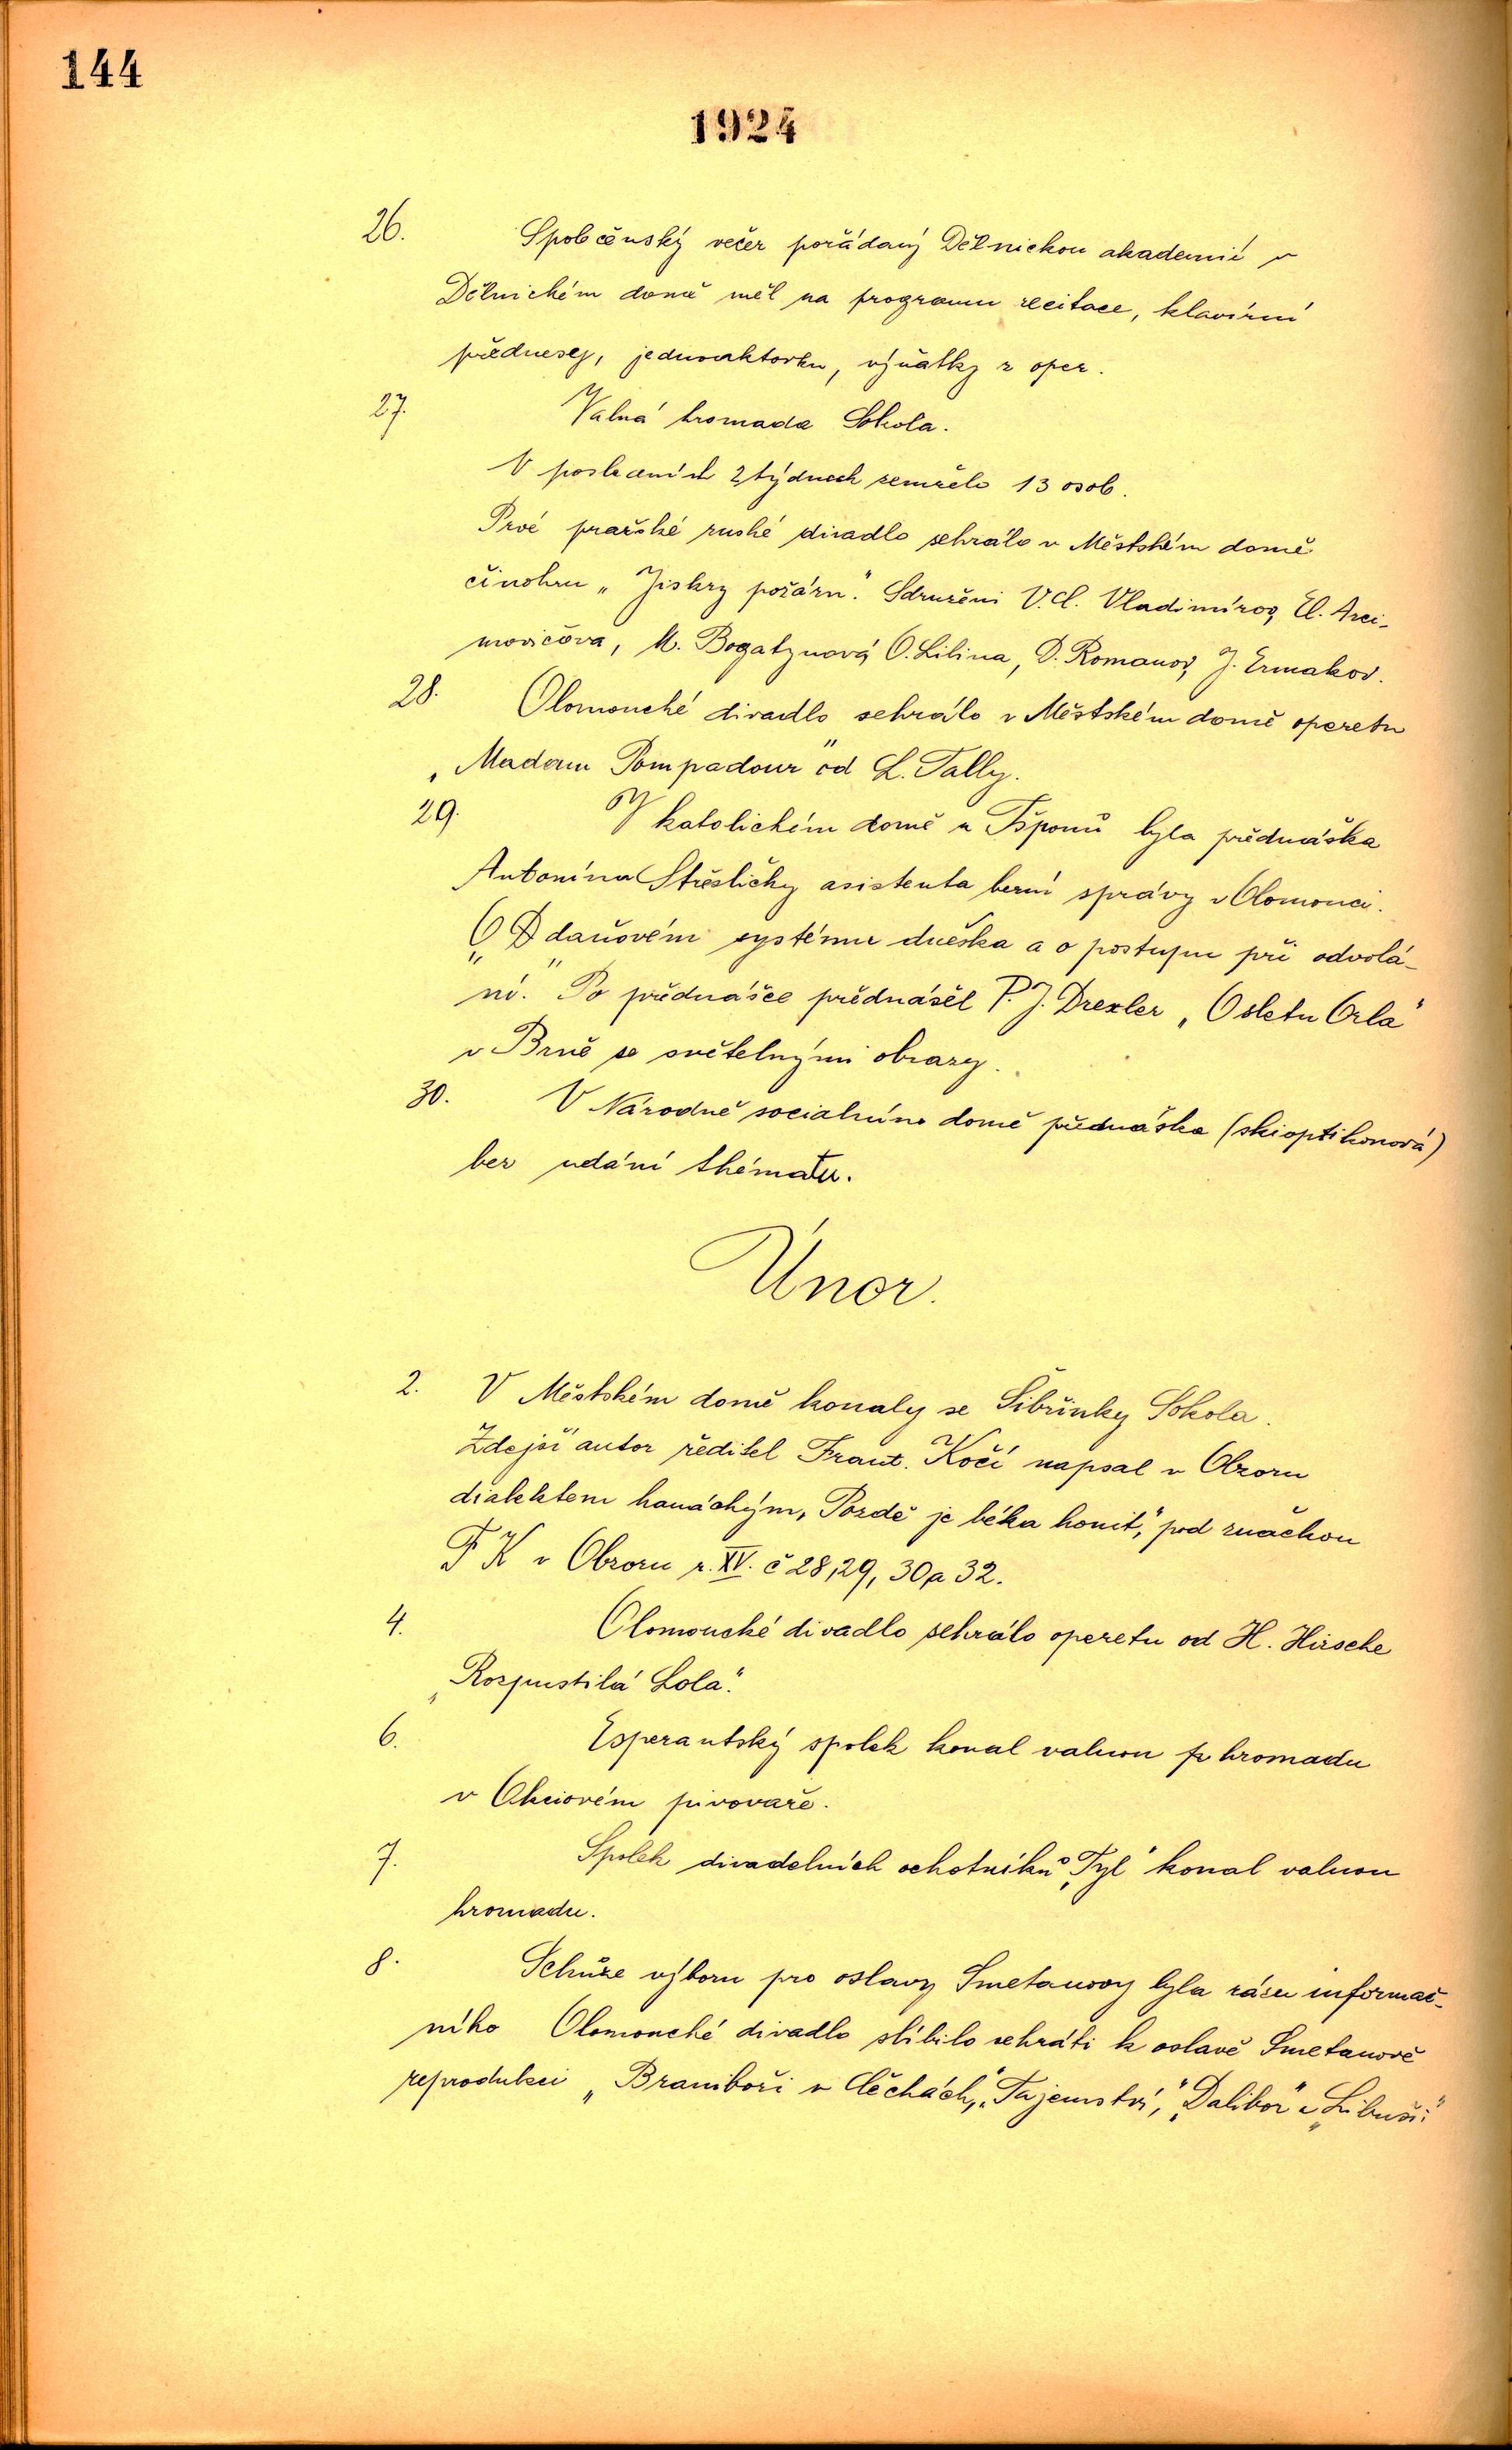 144
1924
26. Společenský večer pořádaný Dělnickou akademií v
Dělnickém domě měl na programu recitace, klavírní
přednesy, jednoaktovku, výňatky z oper.
27. Valná hromada Sokola.
V posledních 2 týdnech zemřelo 13 osob.
Prvé pražské ruské divadlo sehrálo v Městském domě
činohru „Jiskry požáru". Sdruženi V. Cl. Vladimírov, El. Arci-
movičova, M. Bogatynová, O. Lilina, D. Romanov, J. Ermakov.
28. Olomoucké divadlo sehrálo v Městském domě operetu
„Madam Pompadour" od L. Fally.
29. V katolickém domě u Tšponů byla přednáška
Antonína Střesličky asistenta berní správy v Olomouci.
„O daňovém systému dneška a o postupu při odvolá-
ní." Po přednášce přednášel P. J. Drexler „O sletu Orla"
v Brně se světelnými obrazy.
30. V Národně sociálním domě přednáška (skioptikonová)
bez udání thématu.
Únor.
2. V Městském domě konaly se Šibřinky Sokola.
Zdejší autor ředitel Frant. Kočí napsal v Obzoru
dialektem hanáckým „Pozdě je béka honit," pod značkou
F K v Obzoru r. XV. č 28, 29, 30 a 32.
4. Olomoucké divadlo sehrálo operetu od H. Hirsche
„Rozpustilá Lola".
6. Esperantský spolek konal valnou hromadu
v Akciovém pivovaře.
7. Spolek divadelních ochotníků „Tyl" konal valnou
hromadu.
8. Schůze výboru pro oslavy Smetanovy byla rázu informač-
ního Olomoucké divadlo slíbilo sehráti k oslavě Smetanově
reprodukci „Braniboři v Čechách," „Tajemství," „Dalibor" a „Libuši"